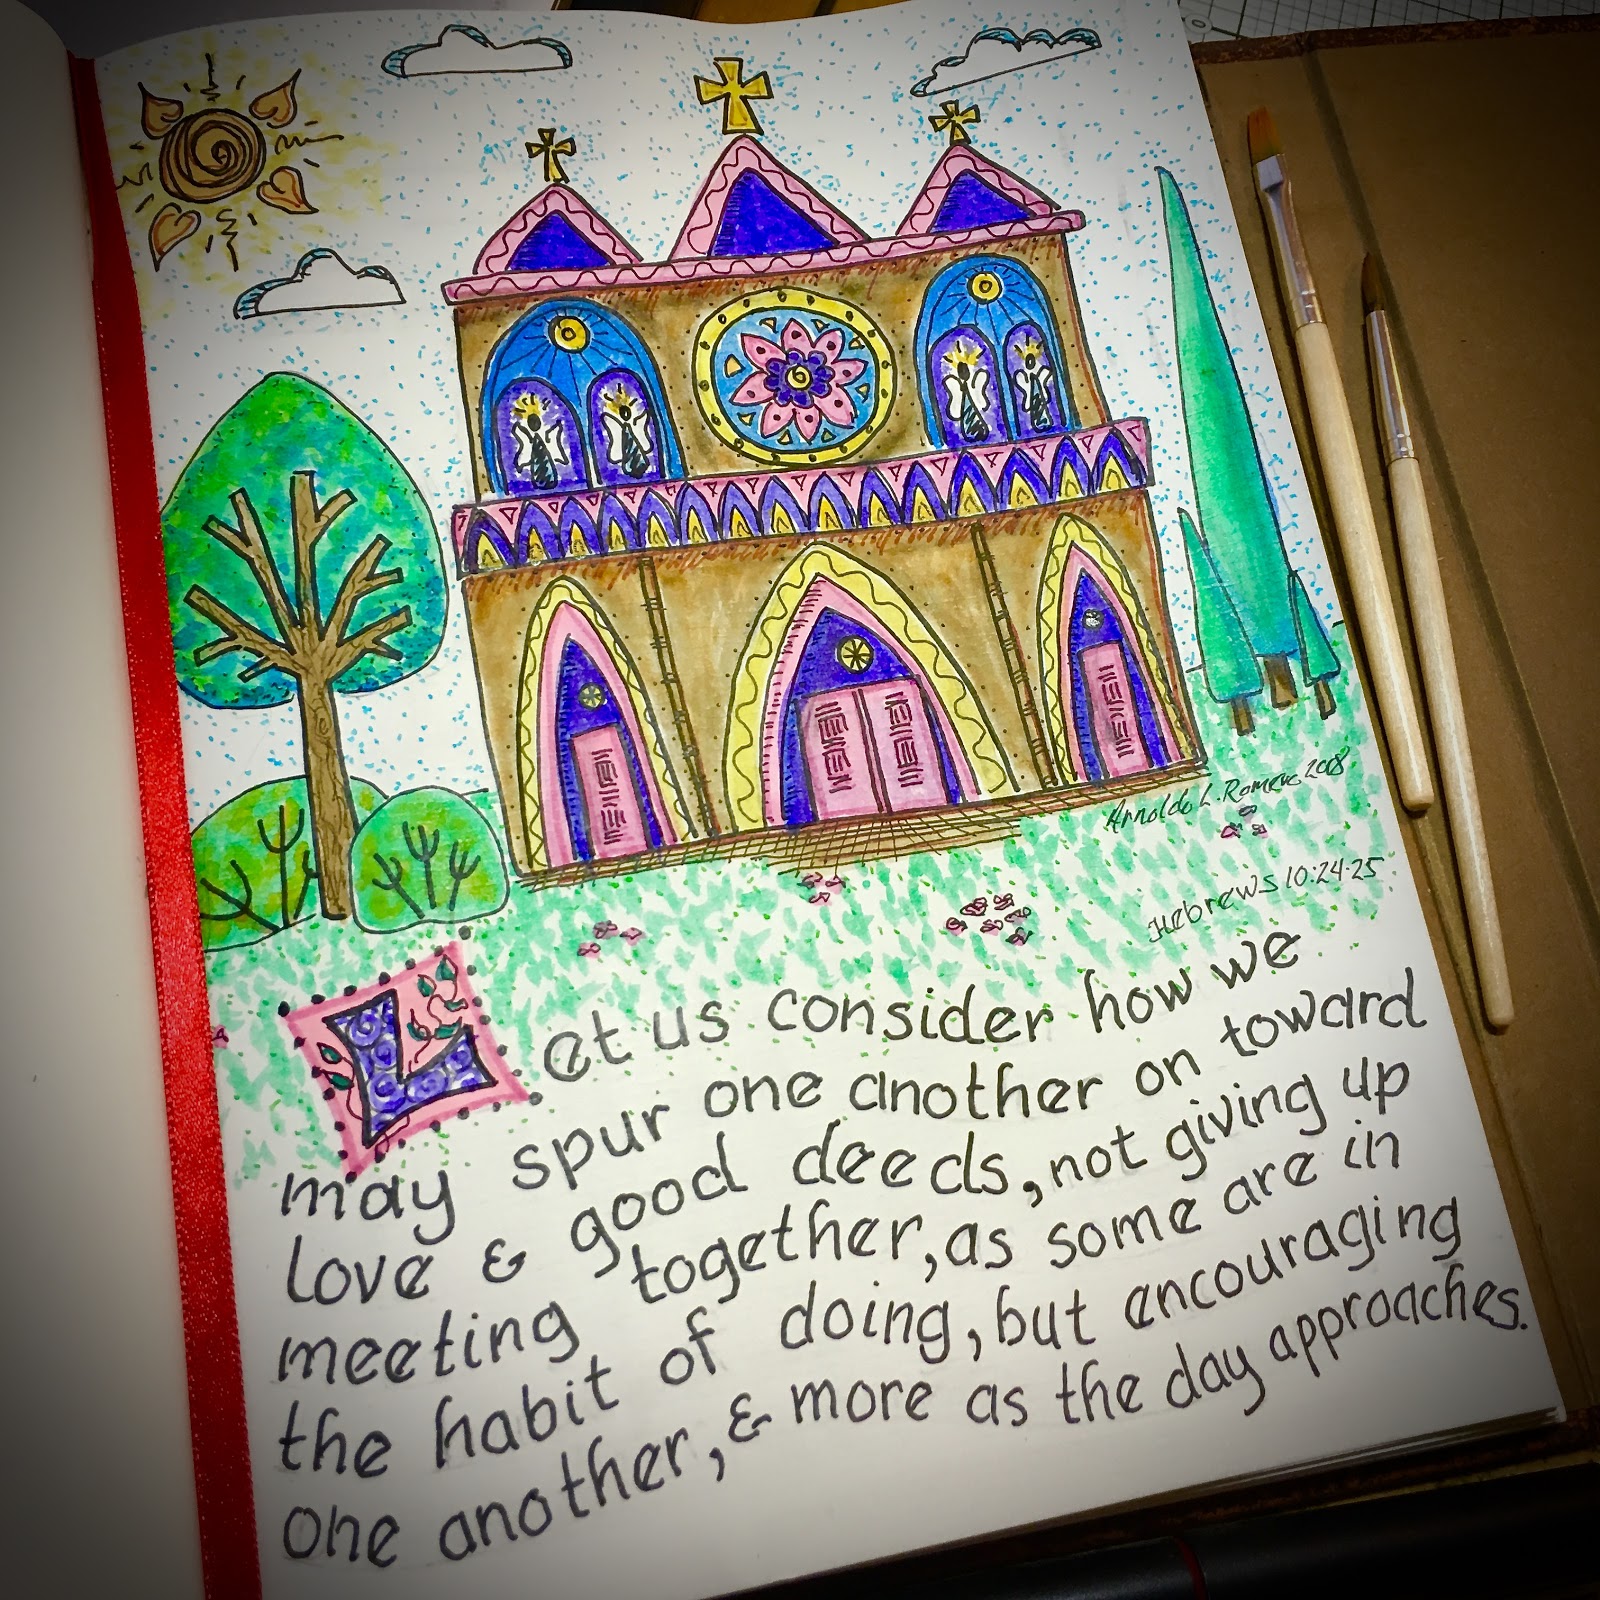 Arnoldo L. Romero 2008
Hebrews 10:24-25
Let us consider how we
may spur one another on toward
love & good deeds, not giving up
meeting together, as some are in
the habit of doing, but encouraging
one another, & more as the day approaches.